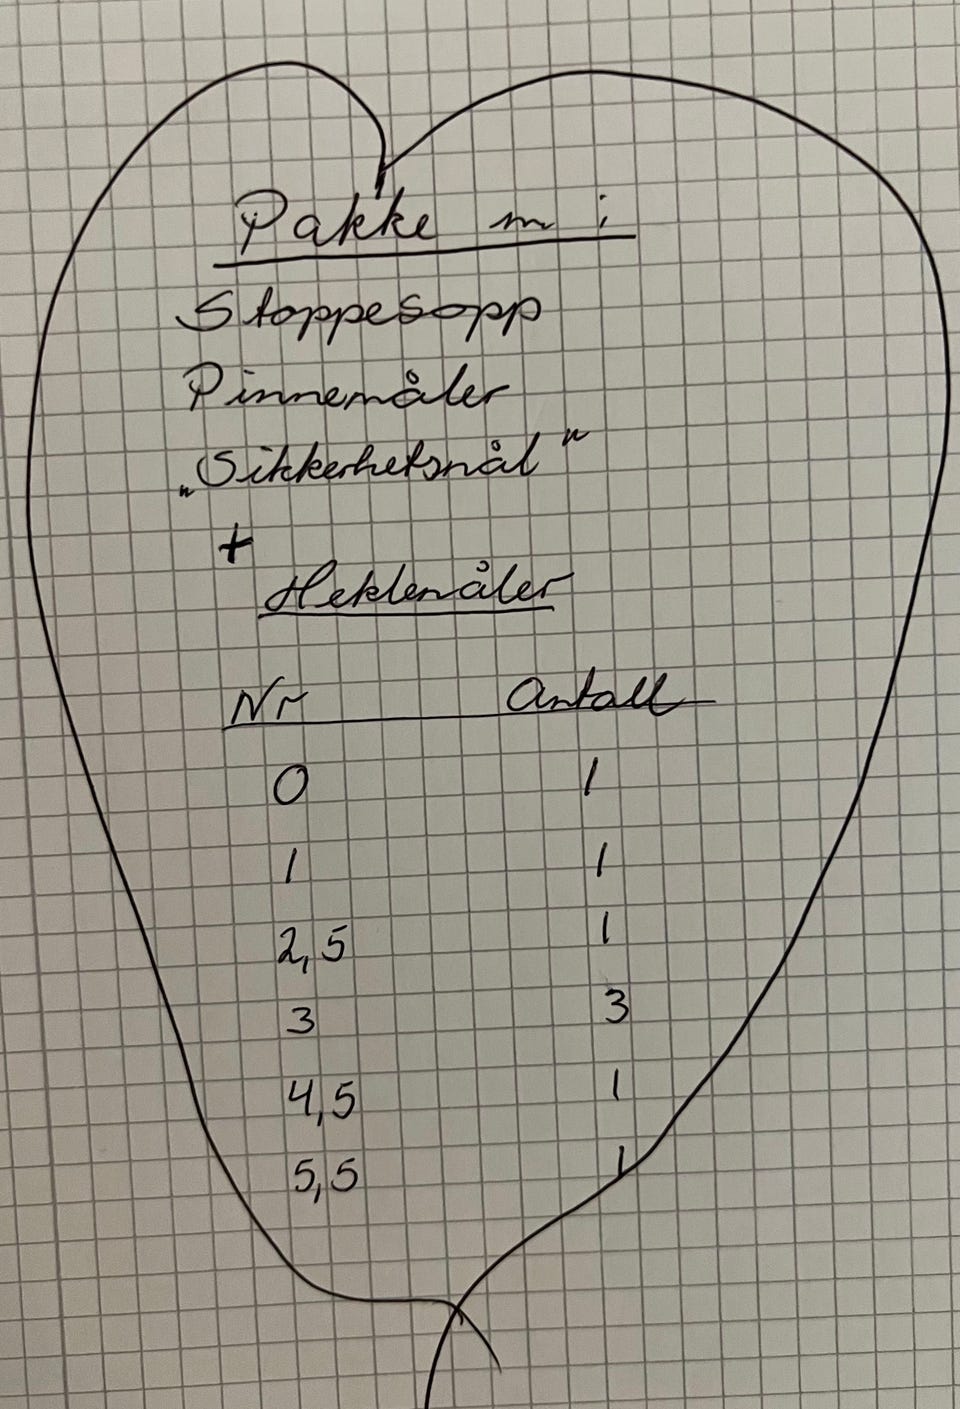 Pakke m i
Stoppesopp
Pinnemåler
„Sikkerhetsnål"
+
Heklenåler
Nr Antall
0 1
1 1
2,5 1
3 3
4,5 1
5,5 1